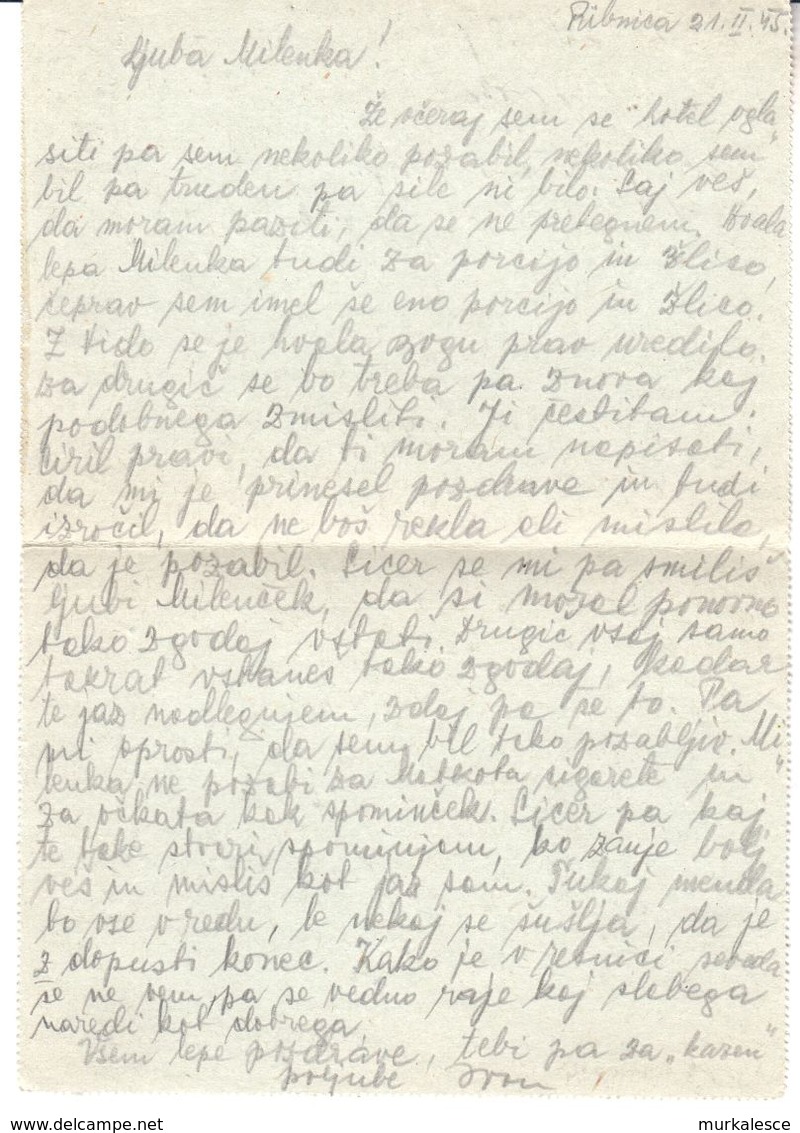 Ribnica 21.II.45.
Ljuba Milenka!
Že včeraj sem se hotel ogla„
siti pa sem nekoliko pozabil, nekoliko sem
bil pa truden pa sile ni bilo. Saj veš,
da moram paziti, da se ne prelegnem. Hvala
lepa Milenka tudi za porcijo in žlico,
čeprav sem imel še eno porcijo in žlico.
Z tido se je hvala bogu prav uredilo.
Za drugič se bo treba pa znova kaj
podobnega zmisliti. Ti čestitam.
Ciril pravi, da ti moram napisati,
da mi je prinesel pozdrave in tudi
izročil, da ne boš rekla ali mislila,
da je pozabil. Sicer se mi pa smiliš
ljubi Milenček, da si moral ponovno
tako zgodaj vstati. Drugič vsaj samo
takrat vstaneš tako zgodaj, kadar
te jaz nadlegujem, zdaj pa še to. Pa
mi oprosti, da sem bil tako pozabljiv. Mi„
lenka ne pozabi za Matkota cigarete in
za očkata kak spominček. Sicer pa kaj
te take stvari spominjam, ko zanje bolj
veš in misliš kot jaz sam. Tukaj menda
bo vse v redu, le nekaj se šušlja, da je
z dopusti konec. Kako je v resnici seveda
še ne vem, pa se vedno raje kaj slabega
naredi kot dobrega.
Vsem lepe pozdrave, tebi pa za „kazen"
poljube Ivan
www.delcampe.net
murkalesce